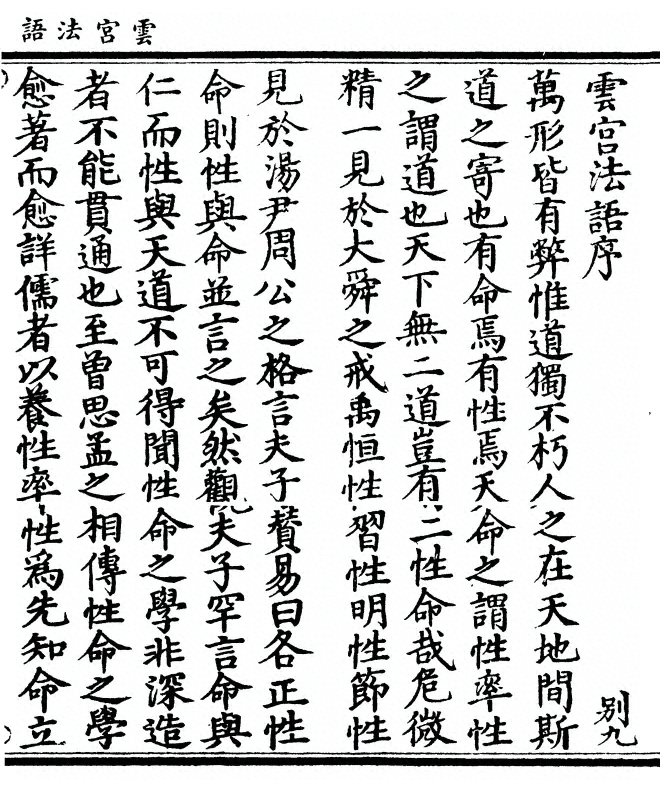 雲宮法語
雲宮法語序
別九
萬形皆有弊惟道獨不朽人之在天地間斯
道之寄也有命焉有性焉天命之謂性率性
之謂道也天下無二道豈有二性命哉危微
精一見於大舜之戒禹恒性習性明性節性
見於湯尹周公之格言夫子賛易曰各正性
命則性與命並言之矣然觀夫子罕言命與
仁而性與天道不可得聞性命之學非深造
者不能貫通也至曾思孟之相傳性命之學
愈著而愈詳儒者以養性率性爲先知命立